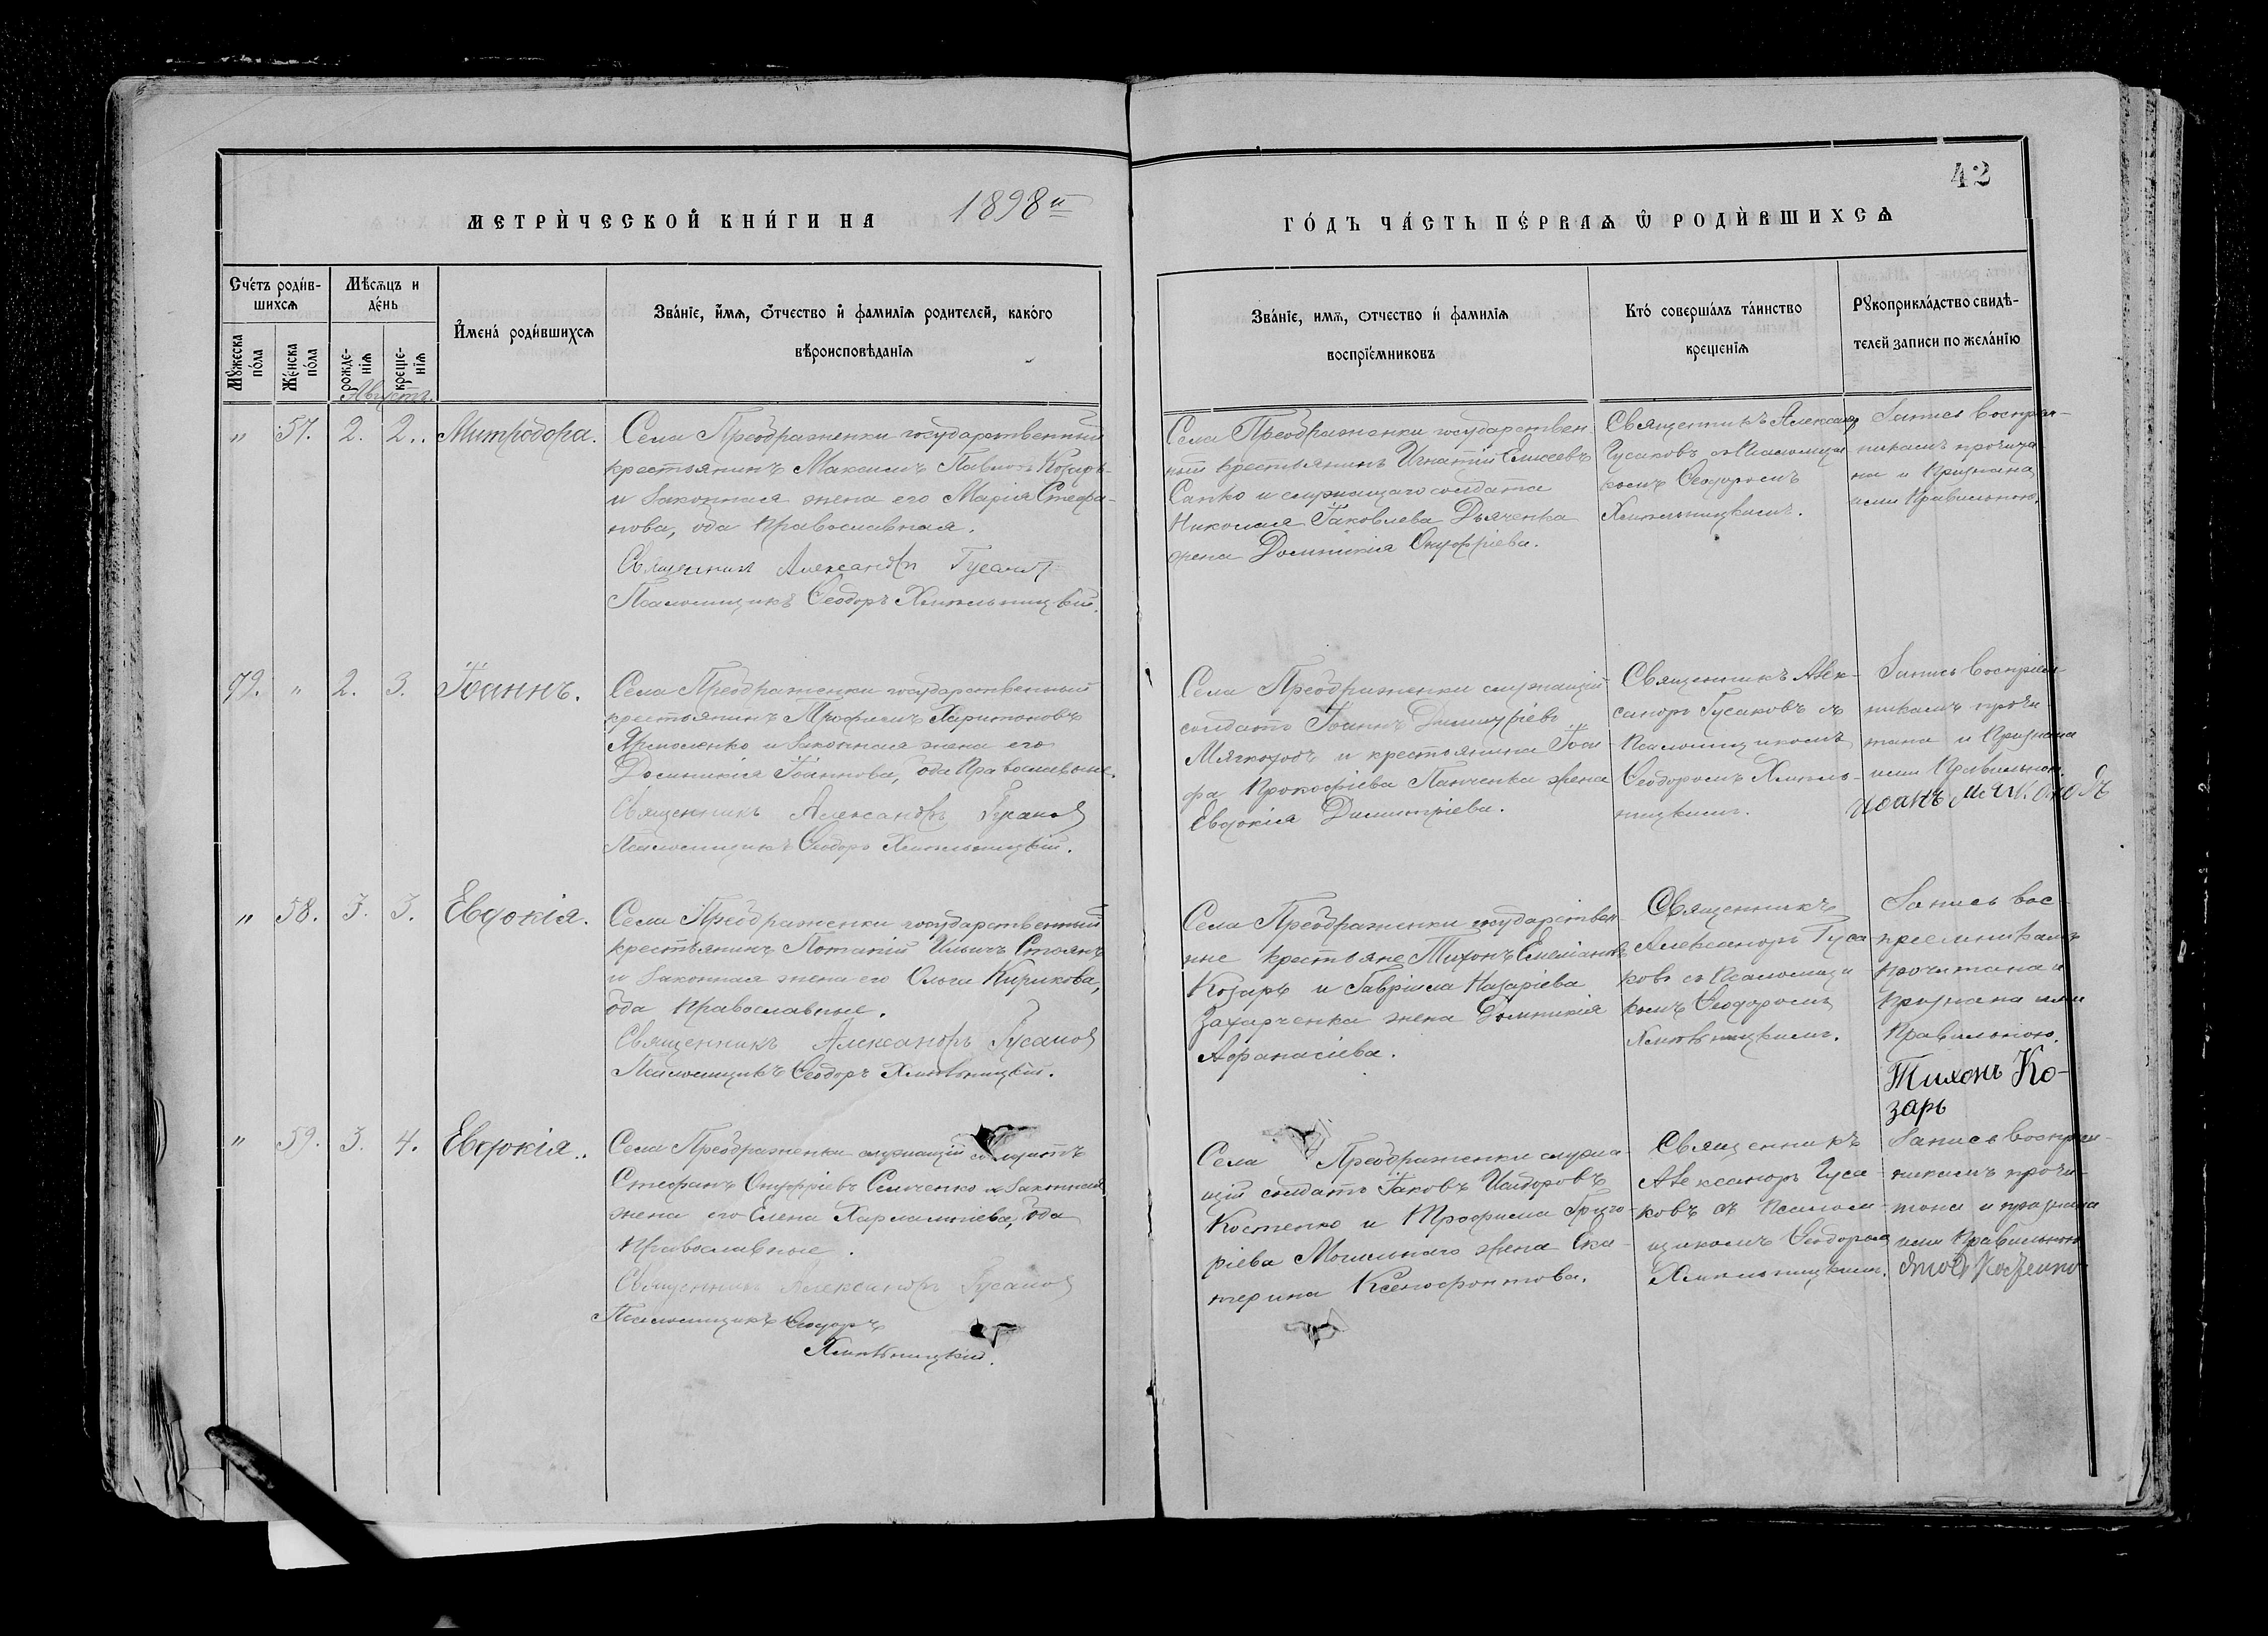 42
МЕТРИ́ЧЕСКОЙ КНИ́ГИ НА 1898й ГО́ДЪ ЧА́СТЬ ПЕ́РВАѦ Ѡ РОДИ́ВШИХСѦ
Сче́тъ роди́в-
шихсѧ
Мꙋжеска по́ла
Же́нска по́ла
Мѣ́сѧцъ и де́нь
рожде-
нїѧ
креще-
нїѧ
Августъ.
И҆мена́ роди́вшихсѧ
Зва́нїе, и҆́мѧ, ѻ҆́тчество и҆ фами́лїѧ роди́телей, како́го
вѣроисповѣ́данїѧ
Зва́нїе, имѧ, ѻтчество и҆ фами́лїѧ
воспрїе́мниковъ
Кто́ соверша́лъ та́инство
креще́нїѧ
Рꙋкоприкла́дство свидѣ́-
телей записи по жела́нїю
" 57. 2. 2. Митродора.
Села Преображенки государственный
крестьянинъ Максимъ Павловъ Козаръ
и законная жена его Марія Стефа-
нова, оба православная.
Священник Александръ Гусаковъ
Псаломщикъ Ѳеодоръ Хмѣльницкій.
Села Преображенки государствен-
ный крестьянинъ Игнатій Елисеевъ
Сапко и служащаго солдата
Николая Іаковлева Дьяченка
жена Домникія Онуфріева.
Священникъ Александръ
Гусаковъ съ Псаломщи-
комъ Ѳеодоромъ
Хмѣльницкимъ.
Запись воспріем-
никамъ прочита-
на и признана
ими правильною.
79. " 2. 3. Іоаннъ.
Села Преображенки государственный
крестьянинъ Трофимъ Харитоновъ
Ярмоленко и законная жена его
Домникія Іоаннова, оба православные.
Священникъ Александръ Гусаковъ
Псаломщикъ Ѳеодоръ Хмѣльницкій.
Села Преображенки служащій
солдатъ Іоаннъ Димитріевъ
Мягкоходъ и крестьянина Іоси-
фа Прокофіева Панченка жена
Евдокія Димитріева.
Священникъ Алек-
сандръ Гусаковъ съ
Псаломщикомъ
Ѳеодоромъ Хмѣль-
ницкимъ.
Запись воспріем-
никамъ прочи-
тана и признана
ими правильною.
" 58. 3. 3. Евдокія.
Села Преображенки государственный
крестьянинъ Потапій Ильичъ Стоянъ
и законная жена его Ольга Кирикова,
оба православные.
Священникъ Александръ Гусаковъ
Псаломщикъ Ѳеодоръ Хмѣльницкій.
Села Преображенки государствен-
ные крестьяне Тихонъ Емеліановъ
Козаръ и Гавріила Назаріева
Захарченка жена Домникія
Аѳанасіева.
Священникъ
Александръ Гуса-
ковъ съ Псаломщи-
комъ Ѳеодоромъ
Хмѣльницкимъ.
Запись вос-
пріемникамъ
прочитана и
признана ими
правильною.
Тихонъ Ко-
заръ
" 59. 3. 4. Евдокія.
Села Преображенки служащій солдатъ
Стефанъ Онуфріевъ и законная
жена его Елена Харлампіева, оба
православные.
Священникъ Александръ Гусаковъ
Псаломщикъ Ѳеодоръ
Хмѣльницкій.
Села Преображенки служа-
щій солдатъ Іаковъ Исидоровъ
Костенко и Трофима Григо-
ріева Могильнаго жена Ека-
терина Ксенофонтова.
Священникъ
Александръ Гуса-
ковъ съ Псалом-
щикомъ Ѳеодоромъ
Хмѣльницкимъ.
Запись воспріем-
никамъ прочи-
тана и признана
ими правильною